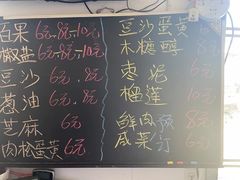 百果 6元.8元.10元
椒盐 6元.8元.10元
豆沙 6元.8元
葱油 6元.8元
芝麻 6元
肉松蛋黄 6元
豆沙蛋黄 8元
木糖醇 8元
枣泥 6元
榴莲 10元
鲜肉 6元
咸菜 6元
预订